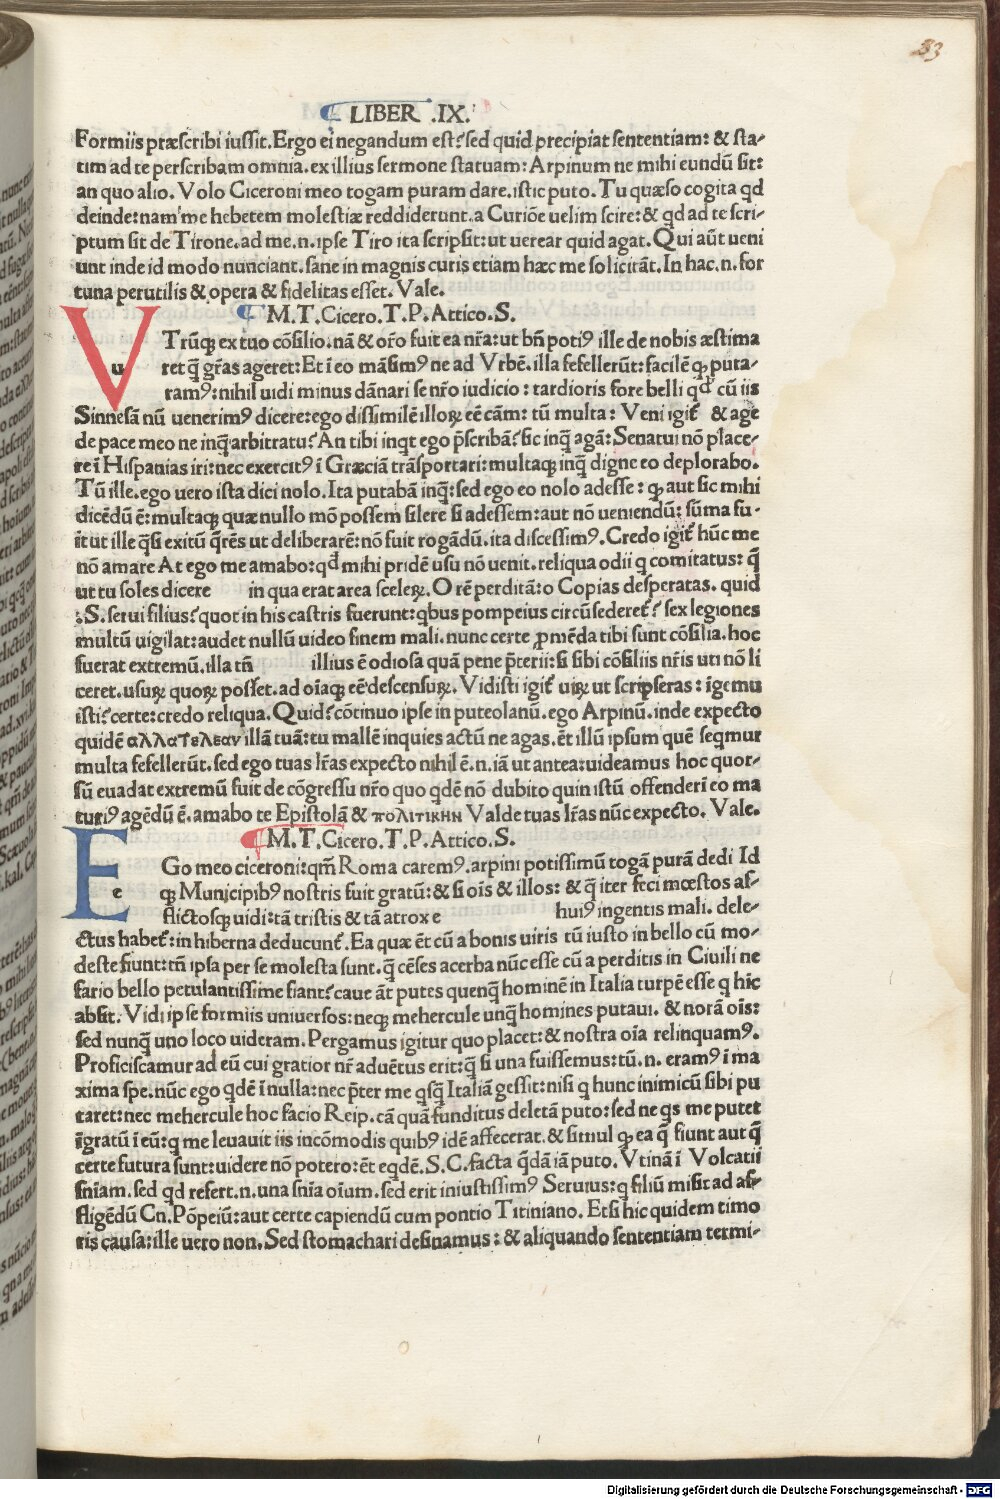 33
LIBER .IX.
Formiis præscribi iussit. Ergo ei negandum est? sed quid precipiat sententiam: & sta-
tim ad te perscribam omnia. ex illius sermone statuam: Arpinum ne mihi eundū sit:
an quo alio. Volo Ciceroni meo togam puram dare. istic puto. Tu quæso cogita qd
deinde: nam me hebetem molestiæ reddiderunt. a Curiōe uelim scire: & qd ad te scri-
ptum sit de Tirone. ad me .n. ipse Tiro ita scripsit: ut uerear quid agat. Qui aūt ueni
unt inde id modo nunciant. sane in magnis curis etiam hæc me solicitāt. In hac .n. for
tuna perutilis & opera & fidelitas esset. Vale.
M.T.Cicero.T.P.Attico.S.
V
u
Trūꝙ ex tuo cōsilio. nā & orō fuit ea nr̄a: ut bn̄ potiꝰ ille de nobis æstima
ret q̄ gr̄as ageret: Et ī eo māsimꝰ ne ad Vrbē. illa fefellerūt: facilē ꝙ puta-
ramꝰ: nihil uidi minus dānari se nr̄o iudicio: tardioris fore belli qd cū iis
Sinnesā nū uenerimꝰ dicere: ego dissimilē illoꝝ eē cām: tū multa: Veni igit̄ & age
de pace meo ne inq̄ arbitratu? An tibi inqt ego p̄scribā? sic inq̄ agā: Senatui nō place-
re ī Hispanias iri: nec exercitꝰ ī Græciā trāsportari: multaꝙ inq̄ digne eo deplorabo.
Tū ille. ego uero ista dici nolo. Ita putabā inq̄: sed ego eo nolo adesse: ꝙ aut sic mihi
dicēdū ē: multaꝙ quæ nullo mō possem silere si adessem: aut nō ueniendū: sūma fu-
it ut ille q̄si exitū q̄rēs ut deliberarē: nō fuit rogādū. ita discessimꝰ. Credo igit̄ hūc me
nō amare At ego me amabo: qd mihi pridē usu nō uenit. reliqua odii q comitatus: q̄
ut tu soles dicere in qua erat area sceleꝝ. O rē perditā: o Copias desperatas. quid
.S. serui filius? quot in his castris fuerunt: qbus pompeius circūsederet̄? sex legiones
multū uigilat: audet nullū uideo finem mali. nunc certe ꝓmēda tibi sunt cōsilia. hoc
fuerat extremū. illa tn̄ illius ē odiosa quā pene p̄terii: si sibi cōsiliis nr̄is uti nō li
ceret. usuꝝ quoꝝ posset. ad oīaꝙ eē descensuꝝ. Vidisti igit̄ uiꝝ ut scripseras: īgemu
isti? certe: credo reliqua. Quid? cōtinuo ipse in puteolanū. ego Arpinū. inde expecto
quidē αλλατελεαν illā tuā: tu mallē inquies actū ne agas. ēt illū ipsum quē seqmur
multa fefellerūt. sed ego tuas lr̄as expecto nihil ē .n. iā ut antea: uideamus hoc quor-
sū euadat extremū fuit de cōgressu nr̄o quo qdē nō dubito quin istū offenderī eo ma
turiꝰ agēdū ē. amabo te Epistolā & πολιτικην Valde tuas lr̄as nūc expecto. Vale.
M.T.Cicero.T.P.Attico.S.
E
e
Go meo ciceroni: qm̄ Roma caremꝰ. arpini potissimū togā purā dedi Id
ꝙ Municipibꝰ nostris fuit gratū: & si oīs & illos: & q̄ iter feci mœstos af-
flictosꝙ uidi: tā tristis & tā atroxe huiꝰ ingentis mali. dele-
ctus habet̄: in hiberna deducunt̄. Ea quæ ēt cū a bonis uiris tū iusto in bello cū mo-
deste fiunt: tn̄ ipsa per se molesta sunt. q̄ cēses acerba nūc esse cū a perditis in Ciuili ne
fario bello petulantissime fiant? caue āt putes quenq̄ hominē in Italia turpē esse q hīc
absit. Vidi ipse formiis uniuersos: neꝙ mehercule unq̄ homines putaui. & norā oīs:
sed nunq̄ uno loco uideram. Pergamus igitur quo placet: & nostra oīa relinquamꝰ.
Proficiscamur ad eū cui gratior nr̄ aduētus erit: q̄ si una fuissemus: tū .n. eramꝰ ī ma
xima spe. nūc ego qdē ī nulla: nec p̄ter me qsq̄ Italiā gessit: nisi q hunc inimicū sibi pu
taret: nec mehercule hoc facio Reip. cā quā funditus deletā puto: sed ne qs me putet
īgratū ī eū: q me leuauit iis incōmodis quibꝰ idē affecerat. & simul ꝙ ea q̄ fiunt aut q̄
certe futura sunt: uidere nō potero: ēt eqdē .S.C. facta q̄dā iā puto. Vtinā ī Volcatii
sn̄iam. sed qd refert .n. una sn̄ia oīum. sed erit iniustissimꝰ Seruius: q filiū misit ad af-
fligēdū Cn. Pōpeiū: aut certe capiendū cum pontio Titiniano. Etsi hic quidem timo
ris causa: ille uero non. Sed stomachari desinamus: & aliquando sententiam termi-
Digitalisierung gefördert durch die Deutsche Forschungsgemeinschaft - DFG